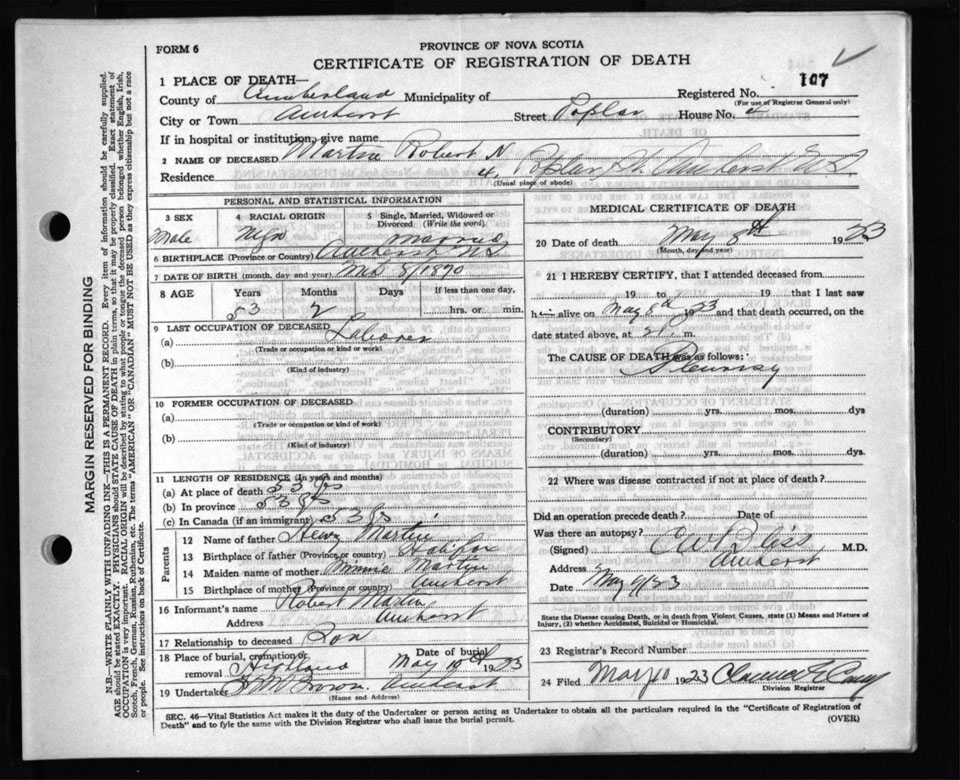 FORM 6
PROVINCE OF NOVA SCOTIA
CERTIFICATE OF REGISTRATION OF DEATH
1 PLACE OF DEATH—
Registered No. 107
(For use of Registrar General only)
County of Cumberland Municipality of
City or Town Amherst Street Poplar House No. 4
If in hospital or institution, give name
2 NAME OF DECEASED Martin Robert N
Residence 4, Poplar St. Amherst N.S.
(Usual place of abode)
PERSONAL AND STATISTICAL INFORMATION
3 SEX Male
4 RACIAL ORIGIN
5 Single, Married, Widowed or Divorced (Write the word). Married
6 BIRTHPLACE (Province or Country) Amherst N S
7 DATE OF BIRTH (month, day and year) 8/1870
8 AGE Years Months Days If less than one day,
53 2 hrs. or min.
9 LAST OCCUPATION OF DECEASED
(a) Laborer
(Trade or occupation or kind or work)
(b)
(Kind of industry)
10 FORMER OCCUPATION OF DECEASED
(a)
(Trade or occupation or kind or work)
(b)
(Kind of industry)
11 LENGTH OF RESIDENCE (In years and months)
(a) At place of death 53 yrs
(b) In province 53 yrs
(c) In Canada (if an immigrant) 53 yrs
Parents
12 Name of father Henry Martin
13 Birthplace of father (Province or country) Halifax
14 Maiden name of mother Minnie Martin
15 Birthplace of mother (Province or country) Amherst
16 Informant's name Robert Martin
Address Amherst
17 Relationship to deceased Son
18 Place of burial, cremation or removal Highland
Date of burial May 10th 1923
19 Undertaker Brown. Amherst
(Name and Address)
MEDICAL CERTIFICATE OF DEATH
20 Date of death May 8th 1923
(Month, day and year)
21 I HEREBY CERTIFY, that I attended deceased from
19 to 19 that I last saw
h alive on May 8th 1923 and that death occurred, on the
date stated above, at
The CAUSE OF DEATH was as follows:
Pleurisy
(duration) yrs. mos. dys
CONTRIBUTORY
(Secondary)
(duration) yrs. mos. dys
22 Where was disease contracted if not at place of death?
Did an operation precede death? Date of
Was there an autopsy?
(Signed) C W Bliss M.D.
Address Amherst
Date May 9/23
State the Disease causing Death, or in death from Violent Causes, state (1) Means and Nature of Injury, (2) whether Accidental, Suicidal or Homicidal.
23 Registrar's Record Number
24 Filed May 10 1923 Clarence
Division Registrar
SEC. 46—Vital Statistics Act makes it the duty of the Undertaker or person acting as Undertaker to obtain all the particulars required in the "Certificate of Registration of
Death" and to fyle the same with the Division Registrar who shall issue the burial permit.
(OVER)
MARGIN RESERVED FOR BINDING
N.B.—WRITE PLAINLY WITH UNFADING INK—THIS IS A PERMANENT RECORD. Every item of information should be carefully supplied.
AGE should be stated EXACTLY. PHYSICIANS should STATE CAUSE OF DEATH in plain terms, so that it may be properly classified. Exact statement of
OCCUPATION is very important. RACIAL ORIGIN will be described by stating to what people or tongue the deceased person belonged whether English, Irish,
Scotch, French, German, Russian, Ruthenian, etc. The terms "AMERICAN" OR "CANADIAN" MUST NOT BE USED as they express citizenship but not a race
or people. See instructions on back of Certificate.